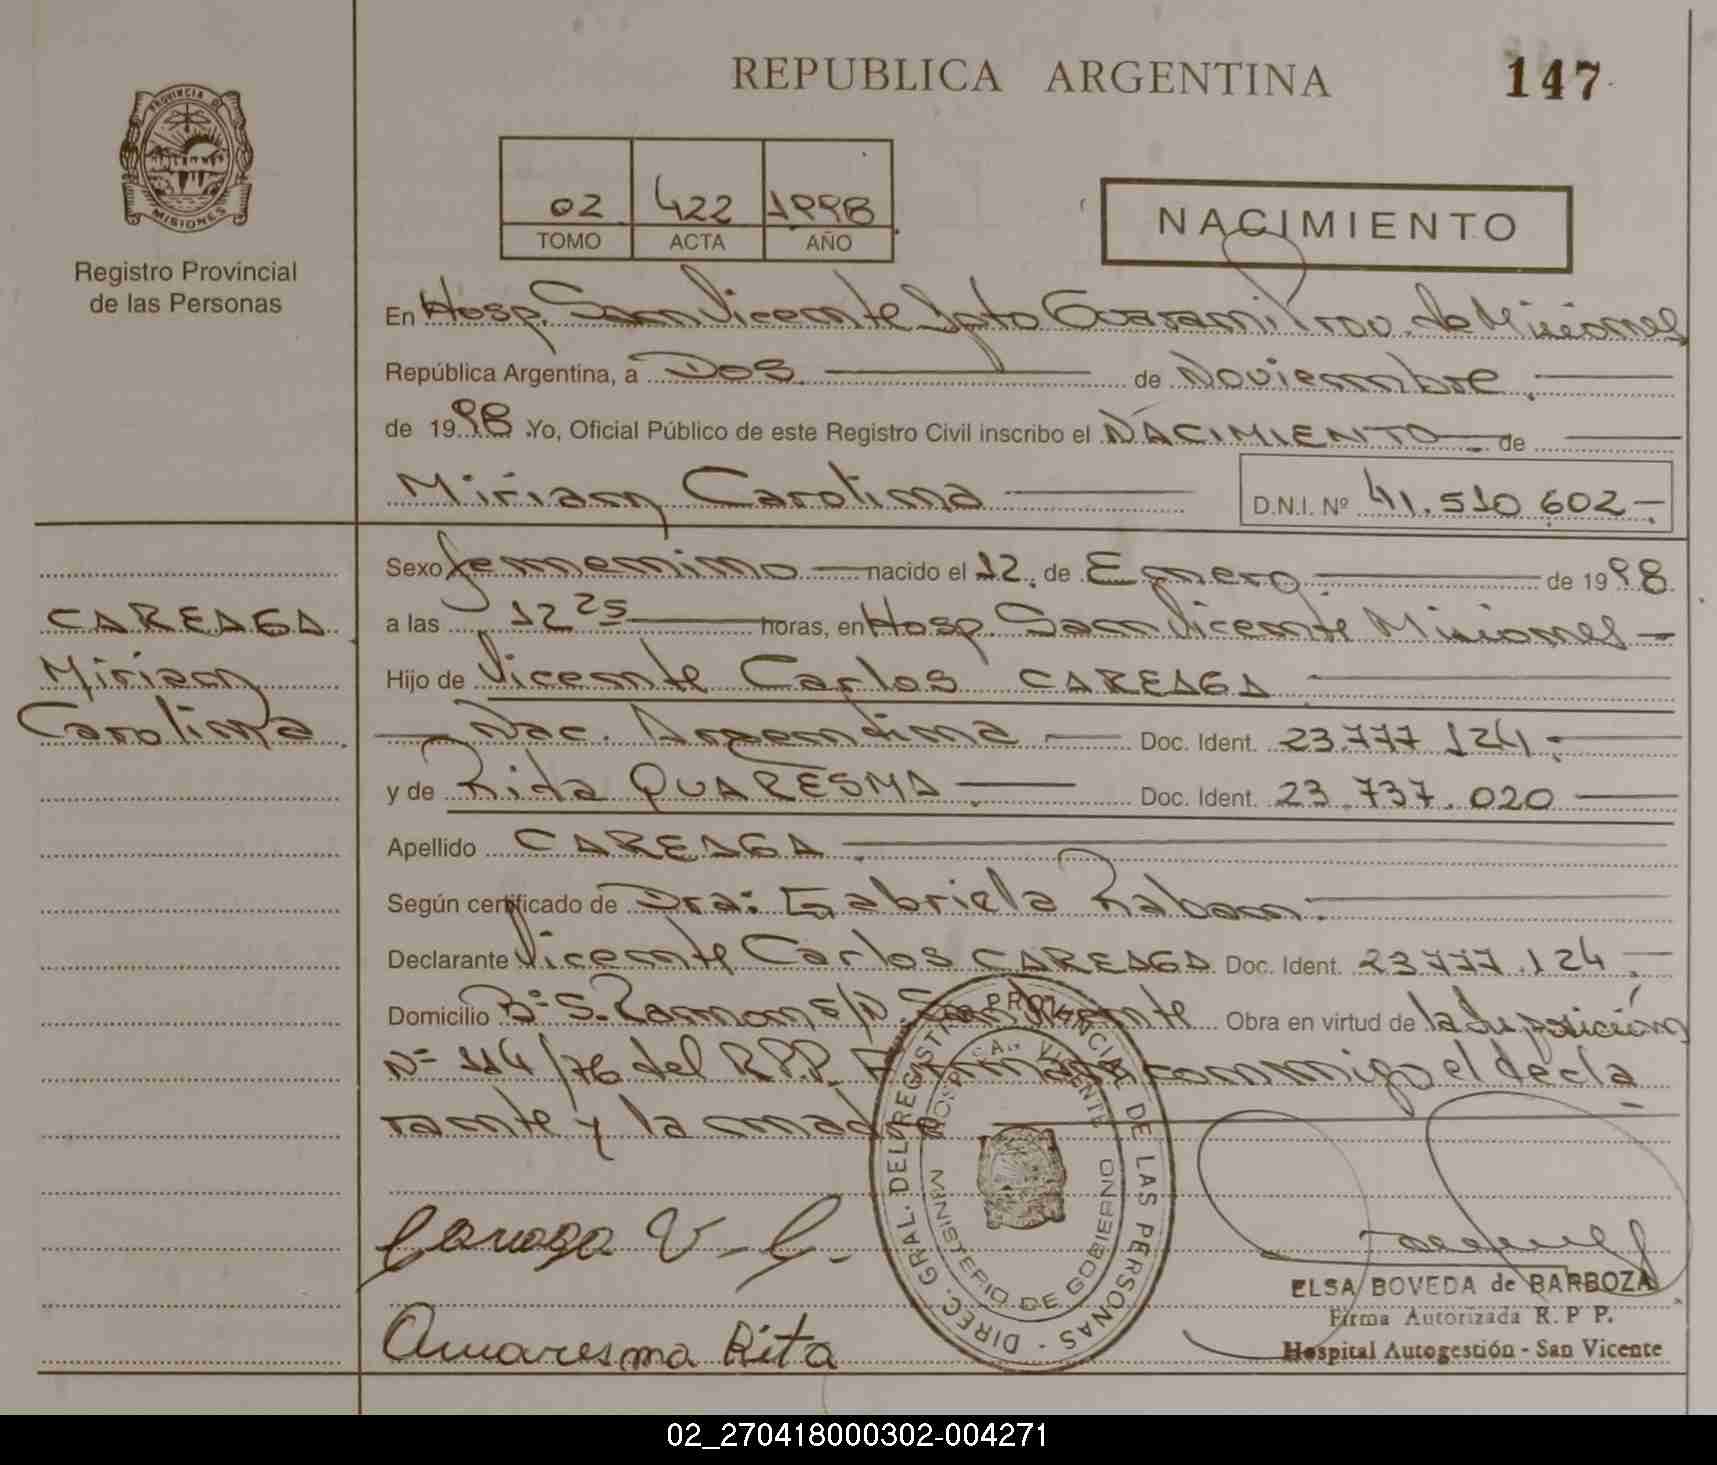 REPUBLICA ARGENTINA
147
PROVINCIA DE
MISIONES
Registro Provincial
de las Personas
02 422 1998
TOMO ACTA AÑO
NACIMIENTO
En Hosp. San Vicente Dpto Guaraní Prov. de Misiones
República Argentina, a Dos de Noviembre
de 1998 Yo, Oficial Público de este Registro Civil inscribo el NACIMIENTO de
Miriam Carolina D.N.I. Nº 41.510.602-
Sexo femenino nacido el 12 de Enero de 1998
a las 12 25 horas, en Hosp. San Vicente Misiones
Hijo de Vicente Carlos CAREAGA
Nac. Argentina Doc. Ident. 23.777.124
y de Rita QUARESMA Doc. Ident. 23.737.020
Apellido CAREAGA
Según certificado de Dra: Gabriela Raban
Declarante Vicente Carlos CAREAGA Doc. Ident. 23.777.124
Domicilio Bº S. Ramon s/n. San Vicente Obra en virtud de la disposición
Nº 114/76 del R.P.P. Firmando conmigo el decla
rante y la madre
CAREAGA
Miriam
Carolina
DIREC. GRAL. DEL REGISTRO PROVINCIAL DE LAS PERSONAS
HOSP. SAN VICENTE
MINISTERIO DE GOBIERNO
Careaga V. C.
Quaresma Rita
ELSA BOVEDA de BARBOZA
Firma Autorizada R. P P.
Hospital Autogestión - San Vicente
02_270418000302-004271